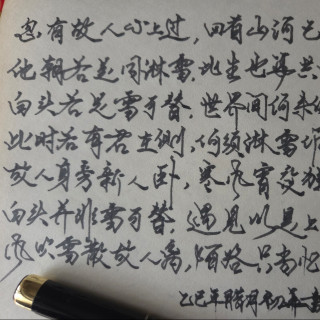 忽有故人心上过，回首山河已
他朝若是同淋雪，此生也算共
白头若是雪可替，世界间何来伤
此时若有君在侧，何须淋雪作
故人身旁新人卧，寒风宵
白头并非雪可替，遇见已是上
风吹雪散故人离，陌路只当忆
乙巳年腊月